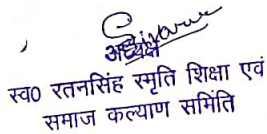 अध्यक्ष
स्व0 रतनसिंह स्मृति शिक्षा एवं
समाज कल्याण समिति